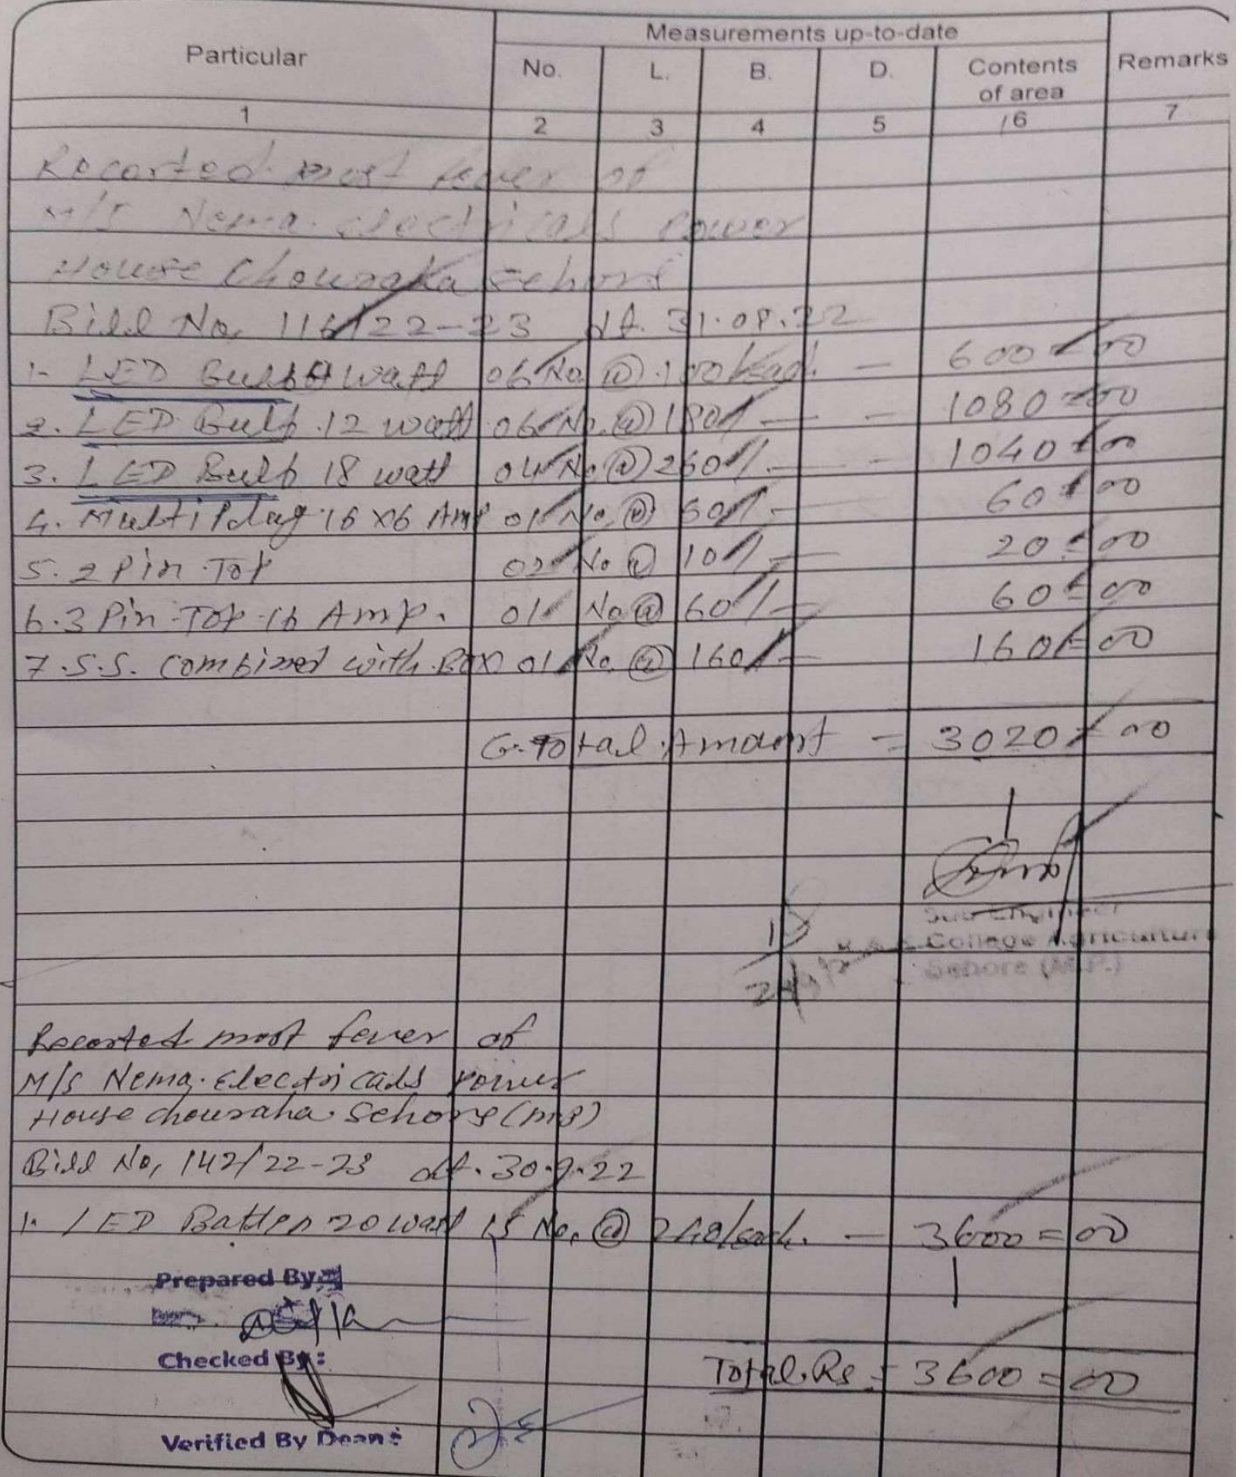 Particular Measurements up-to-date Remarks
No. L. B. D. Contents of area
1 2 3 4 5 6 7
Recorted most fever of
M/S Nema. electricals Power
House Chouraha Sehore
Bill No, 116/22-23 dt. 31.08.22
1- LED Bulb 9 watt 06 No @ 100/each. — 600=00
2. LED Bulb 12 watt 06 No. @ 180/- — 1080=00
3. LED Bulb 18 watt 04 No @ 260/- — 1040=00
4. Multi Plug 16 x6 Amp 01 No. @ 60/- 60=00
5. 2 Pin Top 02 No @ 10/- 20=00
6. 3 Pin Top 16 Amp. 01 No @ 60/- 60=00
7. S.S. Combined with Box 01 No. @ 160/- 160=00
G. Total Amount = 3020=00
Sub Engineer
College Agriculture
Sehore (M.P.)
Recorted most fever of
M/S Nema. Electricals Power
House chouraha Sehore (MP)
Bill No, 142/22-23 dt. 30.9.22
1. LED Batten 20 watt 15 No, @ 240/each. — 3600=00
Prepared By
Checked By:
Total. Rs = 3600=00
Verified By Dean: